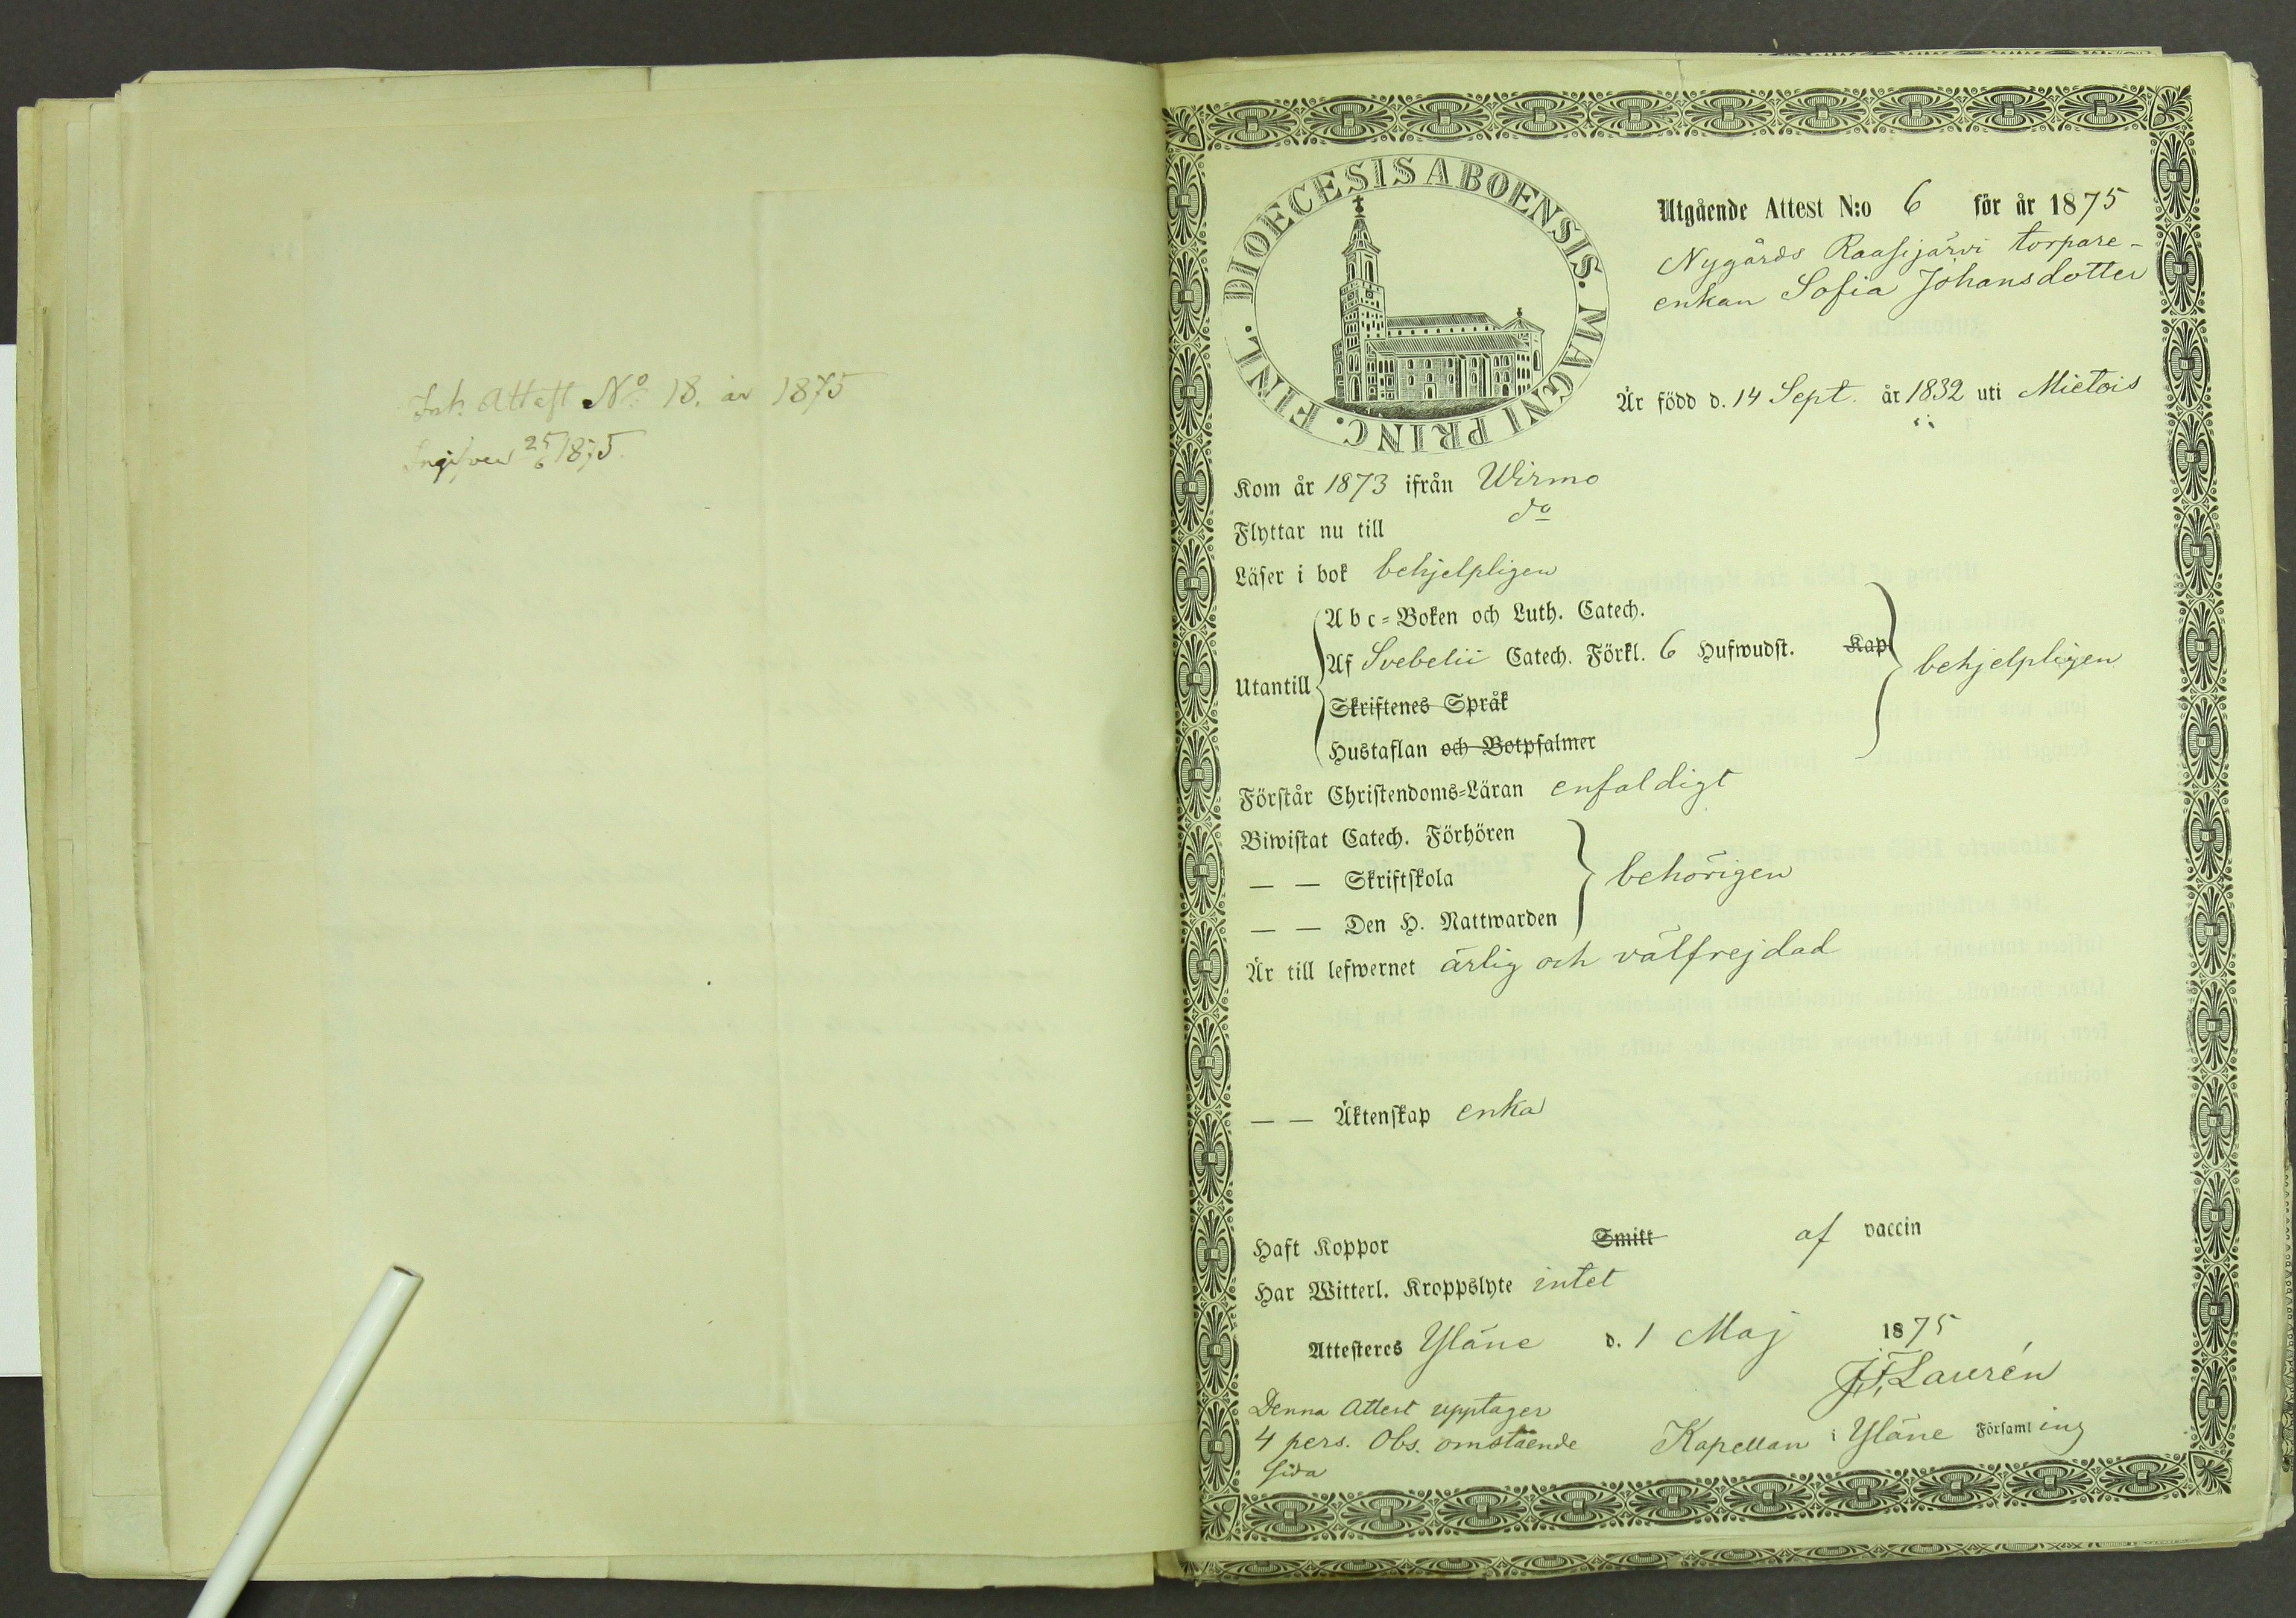 Inh. Attest No 18. år 1875
Ingifven 25/6 1875.
DIOECESIS ABOENSIS. MAGNI PRINC. FINL.
Utgående Attest N:o 6 för år 1875
Nygårds Raasijärvi torpare-
enkan Sofia Johansdotter
Är född d. 14 Sept. år 1832 uti Mietois
Kom år 1873 ifrån Wirmo
Flyttar nu till do
Läser i bok behjelpligen
Utantill
Abc-Boken och Luth. Catech.
Af Svebelii Catech. Förkl. 6 Hufwudst. Kap
Skriftenes Språk
Hustaflan och Botpsalmer
behjelpligen
Förstår Christendoms-Läran enfaldigt
Biwistat Catech. Förhören
— — Skriftskola
— — Den H. Nattwarden
behörigen
Är till lefwernet ärlig och välfrejdad
— — Äktenskap enka
Haft Koppor Smitt af vaccin
Har Witterl. Kroppslyte intet
Attesteres Yläne d. 1 Maj 1875
J. F. Laurén
Kapellan i Yläne Församling
Denna Attest upptager
4 pers. Obs. omstående
sida